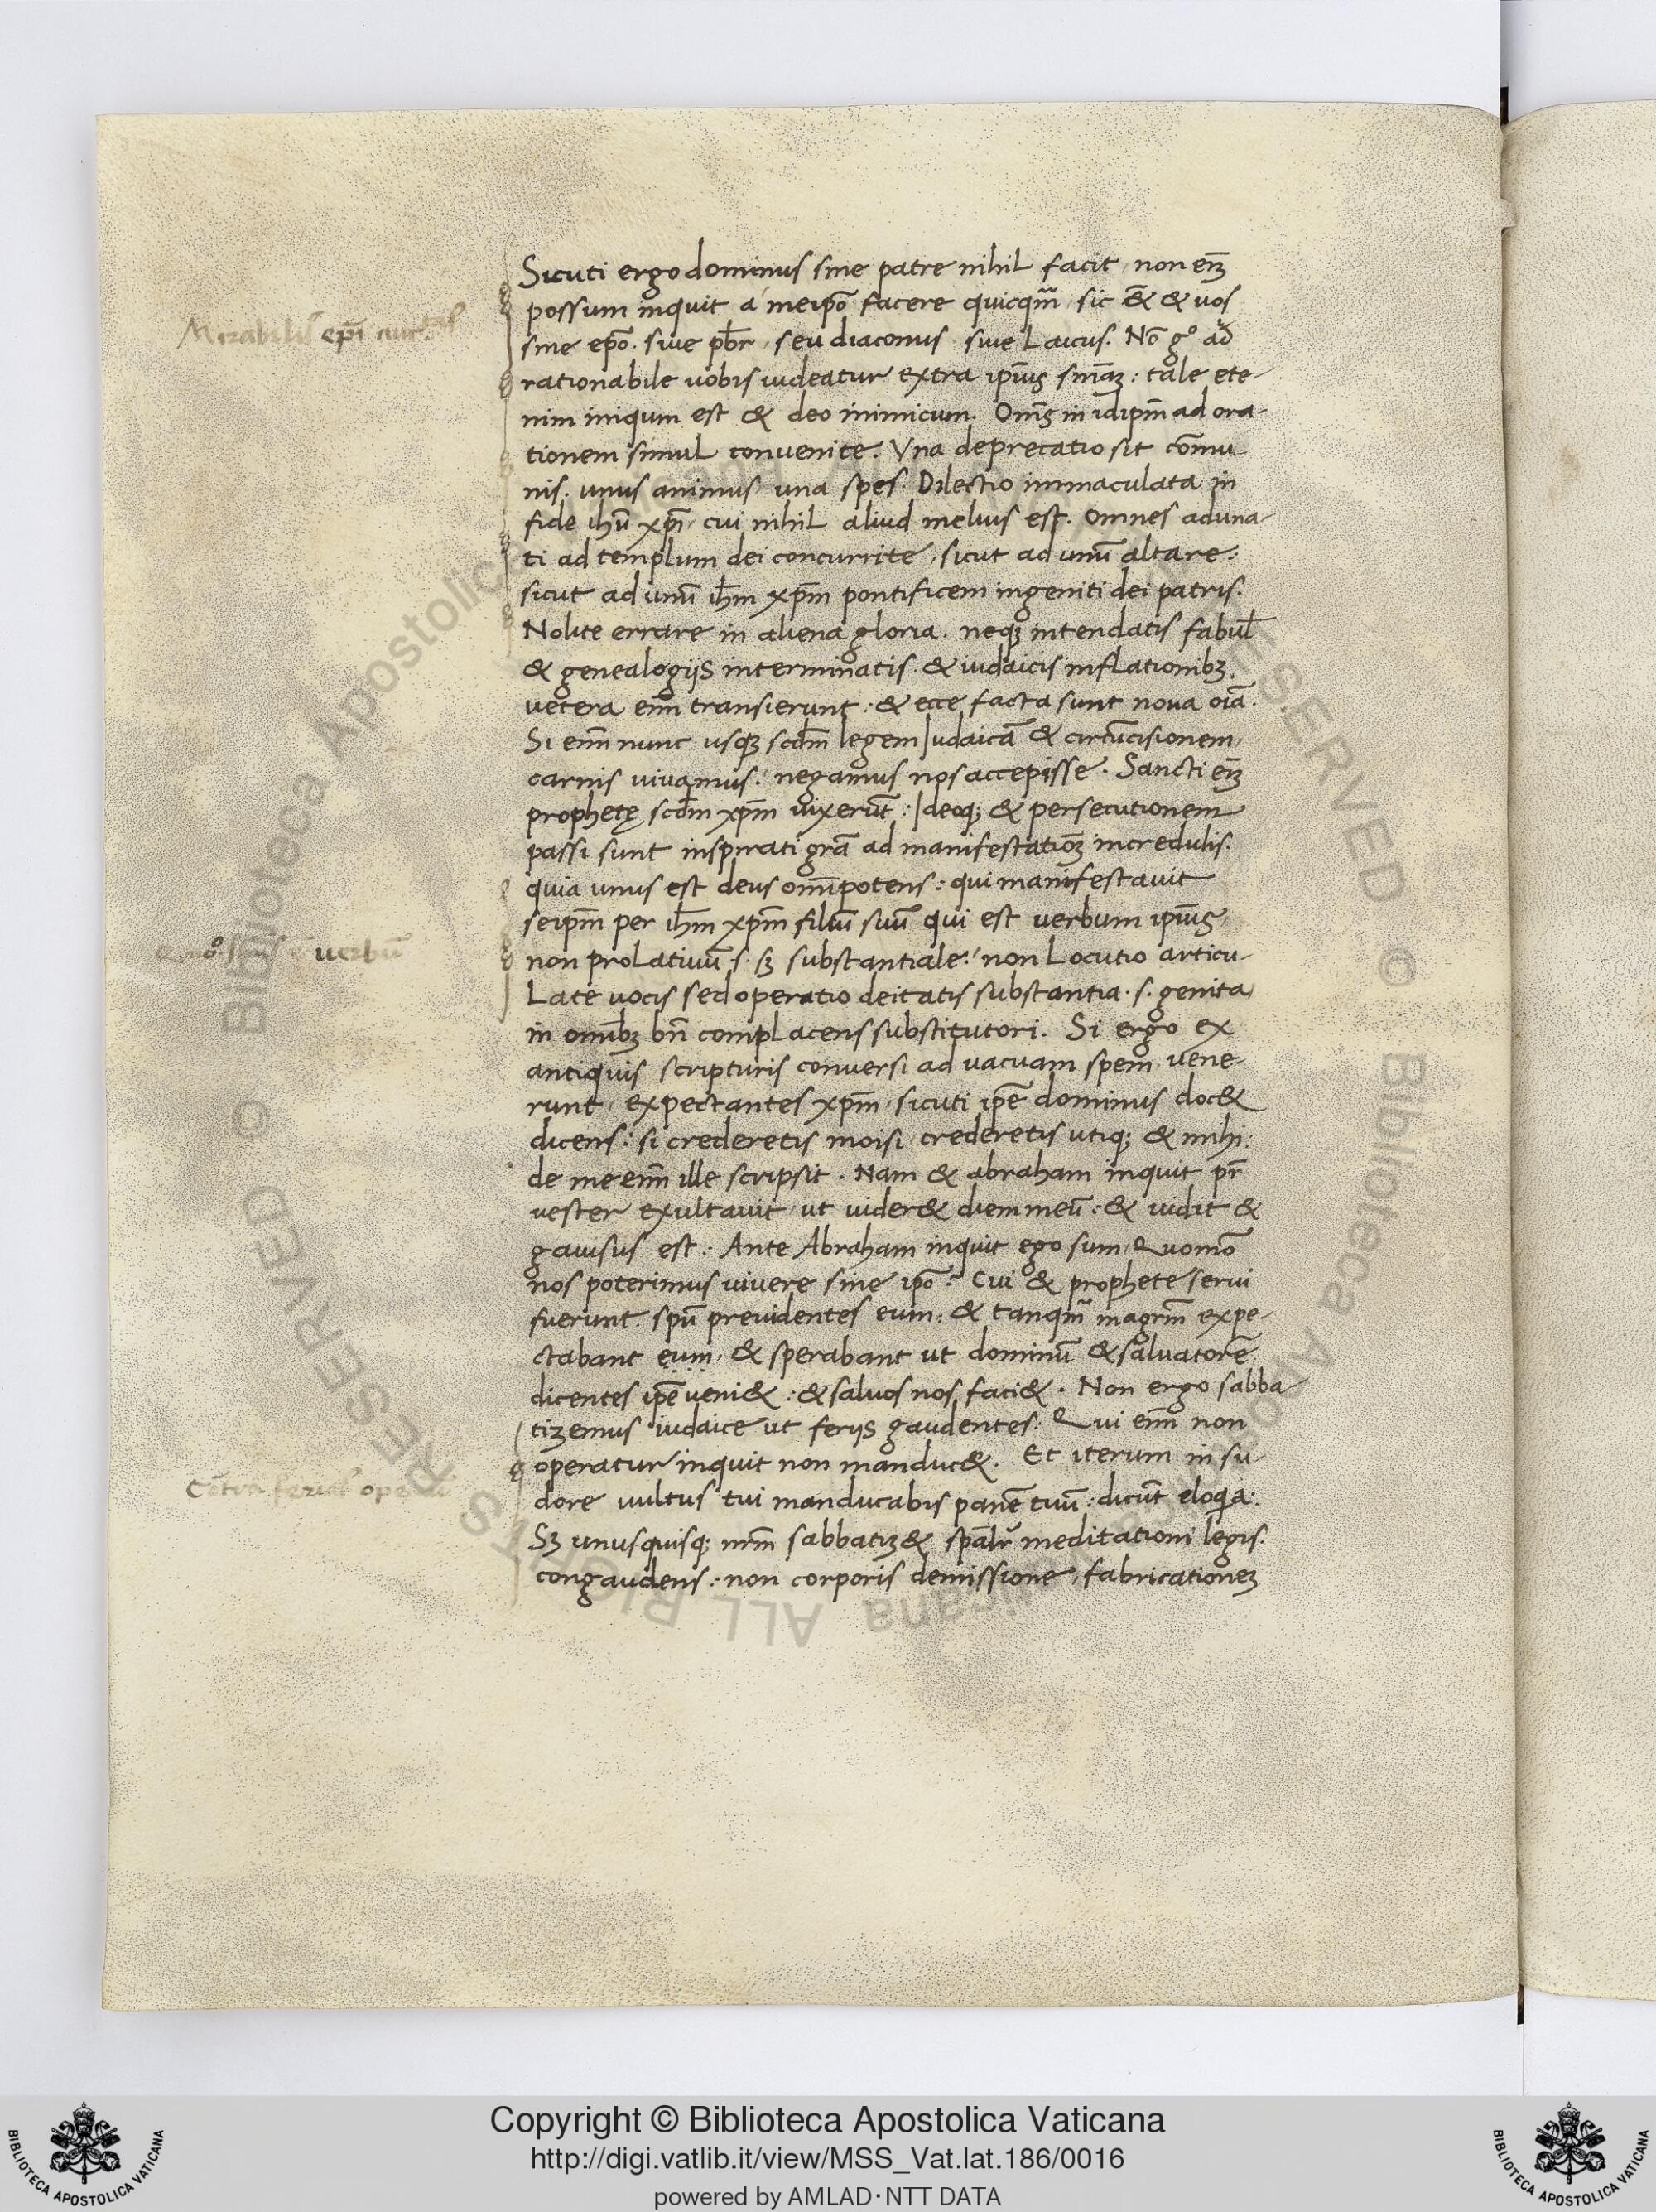 Sicuti ergo dominus sine patre nihil facit, non eñȝ
possum inquit á meip̄o facere quicqm̄, sic & & uos
sine ep̄o. siue pb̄r, seu diaconus siue Laicus. Nō gº
rationabile uobis uideatur extra ip̄ius : tale ete-
nim iniqum est & deo inimicum. Om̄s in idip̄m ad ora-
tionem simul conuenite. Vna deprecatio sit cōmu
nis. unus animus una spes. Dilectio immaculata in
fide ihū xp̄i, cui nihil aliud melius est. omnes aduna-
ti ad templum dei concurrite, sicut ad unū altare:
sicut ad unū ih̄m xp̄m pontificem ingeniti dei patris.
Nolite errare in aliena gloria. neqȝ intendatis fabul̄
& genealogijs interminatis & iudaicis inflationibȝ.
uetera enī transierunt: & ecce facta sunt noua oīa.
Si enī nunc usqȝ scd̄m legem Iudaicā & circūcisionem,
carnis uiuamus: negamus nos accepisse. Sancti eñȝ
prophetę scd̄m xp̄m uixerūt: Ideoq; & persecutionem
passi sunt inspirati grā ad manifestatiōȝ incredulis.
quia unus est deus om̄ipotens: qui manifestauit
seip̄m per ih̄m xp̄m filiū suū qui est uerbum ip̄ius,
non prolatiuū .s. sȝ substantiale: non Locutio articu-
Late uocis sed operatio deitatis substantia .s. genita
in omībȝ bn̄ complacens substitutori. Si ergo ex
antiquis scripturis conuersi ad uacuam spem uene-
runt, expectantes xp̄m, sicuti ip̄e dominus doc&
dicens: si crederetis moisi crederetis utiq; & mihi:
de me enī ille scripsit. Nam & abraham inquit pr̄
uester exultauit, ut uider& diem meū: & uidit &
gauisus est: Ante Abraham inquit ego sum, Quomō
nos poterimus uiuere sine ip̄o? Cui & prophete serui
fuerunt. spū preuidentes eum: & tanqm̄ magrm̄ expe-
ctabant eum, & sperabant ut dominū & saluatorē
dicentes ip̄e ueni&: & saluos nos faci&. Non ergo sabba
tizemus iudaice ut ferijs gaudentes: Qui enī non
operatur inquit non manduc&. Et iterum in su-
dore uultus tui manducabis panē tuū: dicūt eloqia:
Sȝ unusquisq; nrm̄ sabbatiz& meditationi legis.
congaudens: non corporis demissione, fabricationeȝ
Mirabilis ep̄i
uerbū
Cōtra
Copyright © Biblioteca Apostolica Vaticana
http://digi.vatlib.it/view/MSS_Vat.lat.186/0016
powered by AMLAD·NTT DATA
BIBLIOTECA APOSTOLICA VATICANA
BIBLIOTECA APOSTOLICA VATICANA
Biblioteca Apostolica Vaticana ALL RIGHTS RESERVED ©